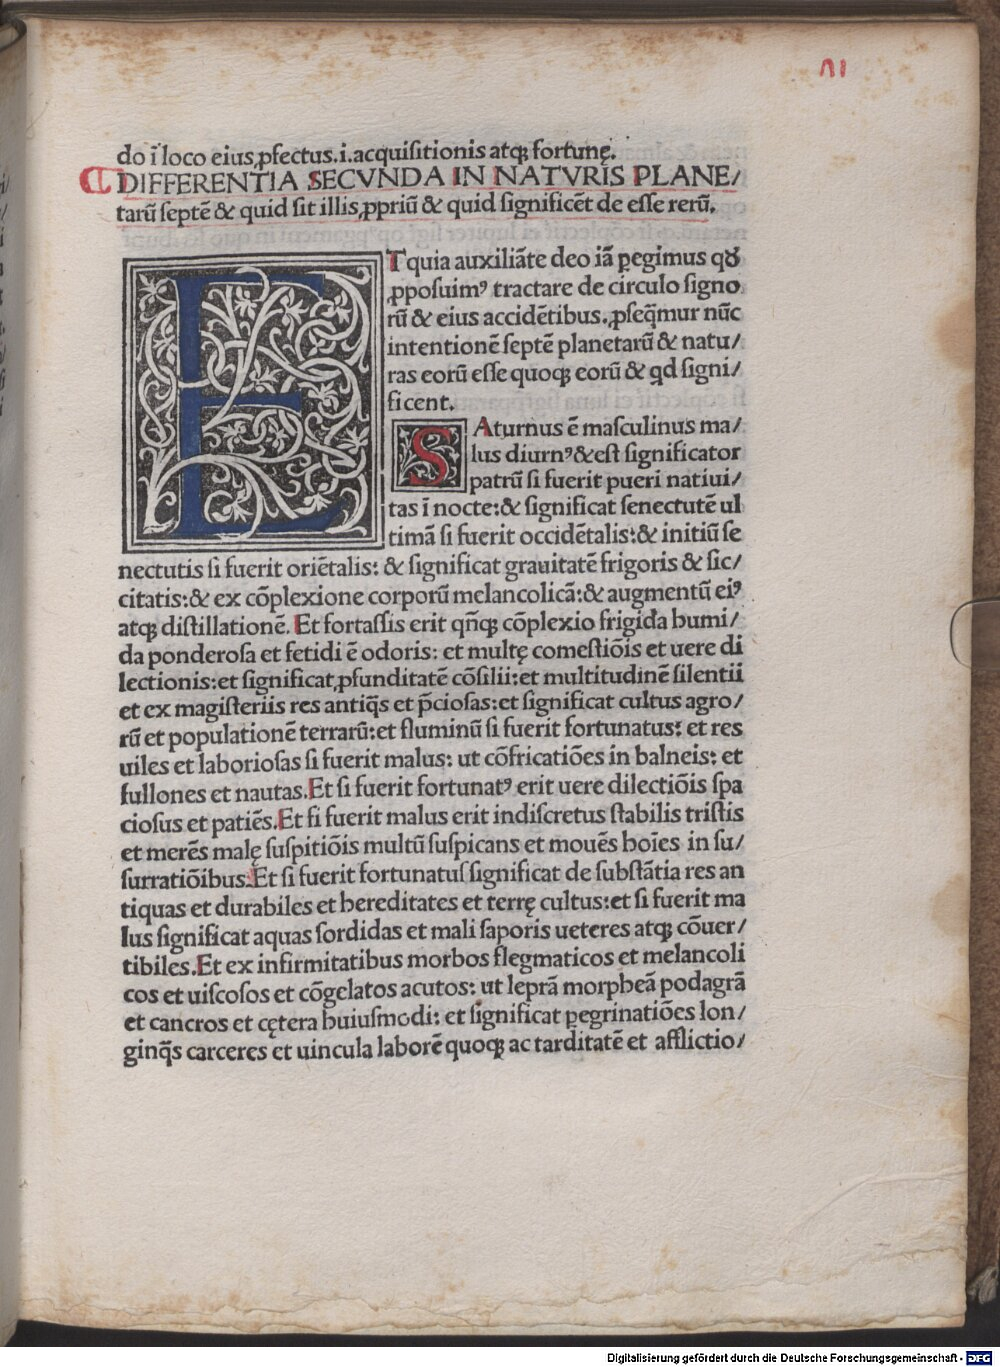 do ĩ loco eius,ꝓfectus.i.acquisitionis atqꝫ fortunę.
DIFFERENTIA SECVNDA IN NATVRIS PLANE/
tarũ septẽ & quid sit illis,ꝓpriũ & quid significẽt de esse rerũ.
ET quia auxiliãte deo iã ꝑegimus qđ
ꝓposuimꝰ tractare de circulo signo
rũ & eius accidẽtibus.,ꝓseq̃mur nũc
intentionẽ septẽ planetarũ & natu/
ras eorũ esse quoqꝫ eorũ & qd signi/
ficent.
SAturnus ẽ masculinus ma/
lus diurnꝰ&est significator
patrũ si fuerit pueri natiui/
tas ĩ nocte:& significat senectutẽ ul
timã si fuerit occidẽtalis:& initiũ se
nectutis si fuerit oriẽtalis: & significat grauitatẽ frigoris & sic/
citatis:& ex cõplexione corporũ melancolicã:& augmentũ eiꝰ
atqꝫ distillationẽ. Et fortassis erit qñqꝫ cõplexio frigida humi/
da ponderosa et fetidi ẽ odoris: et multę comestiõis et uere di
lectionis:et significat,ꝓfunditatẽ cõsilii:et multitudinẽ silentii
et ex magisteriis res antiq̃s et p̃ciosas:et significat cultus agro/
rũ et populationẽ terrarũ:et fluminũ si fuerit fortunatus: et res
uiles et laboriosas si fuerit malus: ut cõfricatiões in balneis: et
fullones et nautas.Et si fuerit fortunatꝰ erit uere dilectiõis spa
ciosus et patiẽs.Et si fuerit malus erit indiscretus stabilis tristis
et merẽs malę suspitiõis multũ suspicans et mouẽs hoĩes in su/
surratiõibus.Et si fuerit fortunatus significat de substãtia res an
tiquas et durabiles et hereditates et terrę cultus:et si fuerit ma
lus significat aquas sordidas et mali saporis ueteres atqꝫ cõuer/
tibiles.Et ex infirmitatibus morbos flegmaticos et melancoli
cos et uiscosos et cõgelatos acutos: ut leprã morpheã podagrã
et cancros et cętera huiusmodi: et significat ꝑegrinatiões lon/
ginq̃s carceres et uincula laborẽ quoqꝫ ac tarditatẽ et afflictio/
Digitalisierung gefördert durch die Deutsche Forschungsgemeinschaft - DFG